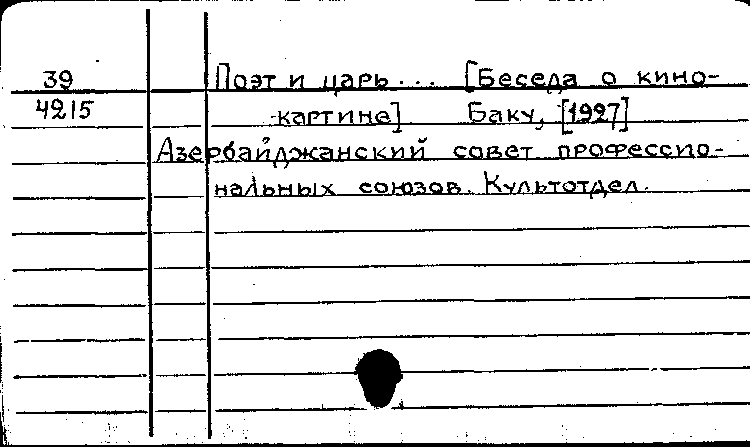 39 Поэт и царь... [Беседа о кино-
4215 картине] Баку, [1927]
Азербайджанский совет профессио-
нальных союзов. Культотдел.